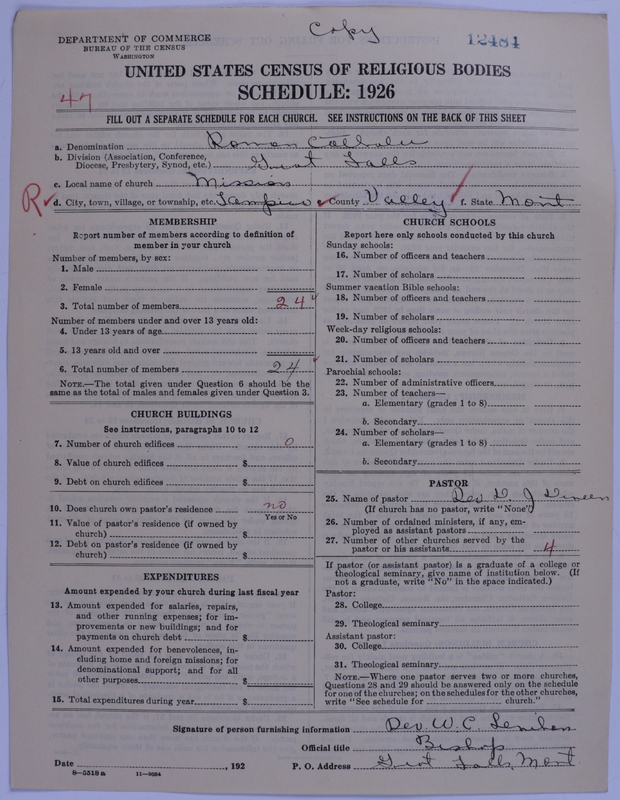 Copy
DEPARTMENT OF COMMERCE
BUREAU OF THE CENSUS
WASHINGTON
12484
UNITED STATES CENSUS OF RELIGIOUS BODIES
SCHEDULE: 1926
47
FILL OUT A SEPARATE SCHEDULE FOR EACH CHURCH. SEE INSTRUCTIONS ON THE BACK OF THIS SHEET
a. Denomination Roman Catholic
b. Division (Association, Conference,
Diocese, Presbytery, Synod, etc.) Great Falls
c. Local name of church Mission
R
d. City, town, village, or township, etc. e. County Valley f. State Mont
MEMBERSHIP
Report number of members according to definition of
member in your church
Number of members, by sex:
1. Male
2. Female
3. Total number of members 24
Number of members under and over 13 years old:
4. Under 13 years of age
5. 13 years old and over
6. Total number of members 24
NOTE.—The total given under Question 6 should be the
same as the total of males and females given under Question 3.
CHURCH BUILDINGS
See instructions, paragraphs 10 to 12
7. Number of church edifices 0
8. Value of church edifices $
9. Debt on church edifices $
10. Does church own pastor's residence no
Yes or No
11. Value of pastor's residence (if owned by
church) $
12. Debt on pastor's residence (if owned by
church) $
EXPENDITURES
Amount expended by your church during last fiscal year
13. Amount expended for salaries, repairs,
and other running expenses; for im-
provements or new buildings; and for
payments on church debt $
14. Amount expended for benevolences, in-
cluding home and foreign missions; for
denominational support; and for all
other purposes $
15. Total expenditures during year $
CHURCH SCHOOLS
Report here only schools conducted by this church
Sunday schools:
16. Number of officers and teachers
17. Number of scholars
Summer vacation Bible schools:
18. Number of officers and teachers
19. Number of scholars
Week-day religious schools:
20. Number of officers and teachers
21. Number of scholars
Parochial schools:
22. Number of administrative officers
23. Number of teachers—
a. Elementary (grades 1 to 8)
b. Secondary
24. Number of scholars—
a. Elementary (grades 1 to 8)
b. Secondary
PASTOR
25. Name of pastor Rev D. J. Dineen
(If church has no pastor, write "None")
26. Number of ordained ministers, if any, em-
ployed as assistant pastors
27. Number of other churches served by the
pastor or his assistants 4
If pastor (or assistant pastor) is a graduate of a college or
theological seminary, give name of institution below. (If
not a graduate, write "No" in the space indicated.)
Pastor:
28. College
29. Theological seminary
Assistant pastor:
30. College
31. Theological seminary
NOTE.—Where one pastor serves two or more churches,
Questions 28 and 29 should be answered only on the schedule
for one of the churches; on the schedules for the other churches,
write "See schedule for church."
Signature of person furnishing information Rev. W. C. Lenihan
Official title Bishop
Date , 192 P. O. Address Great Falls, Mont
8—5518a 11—9084